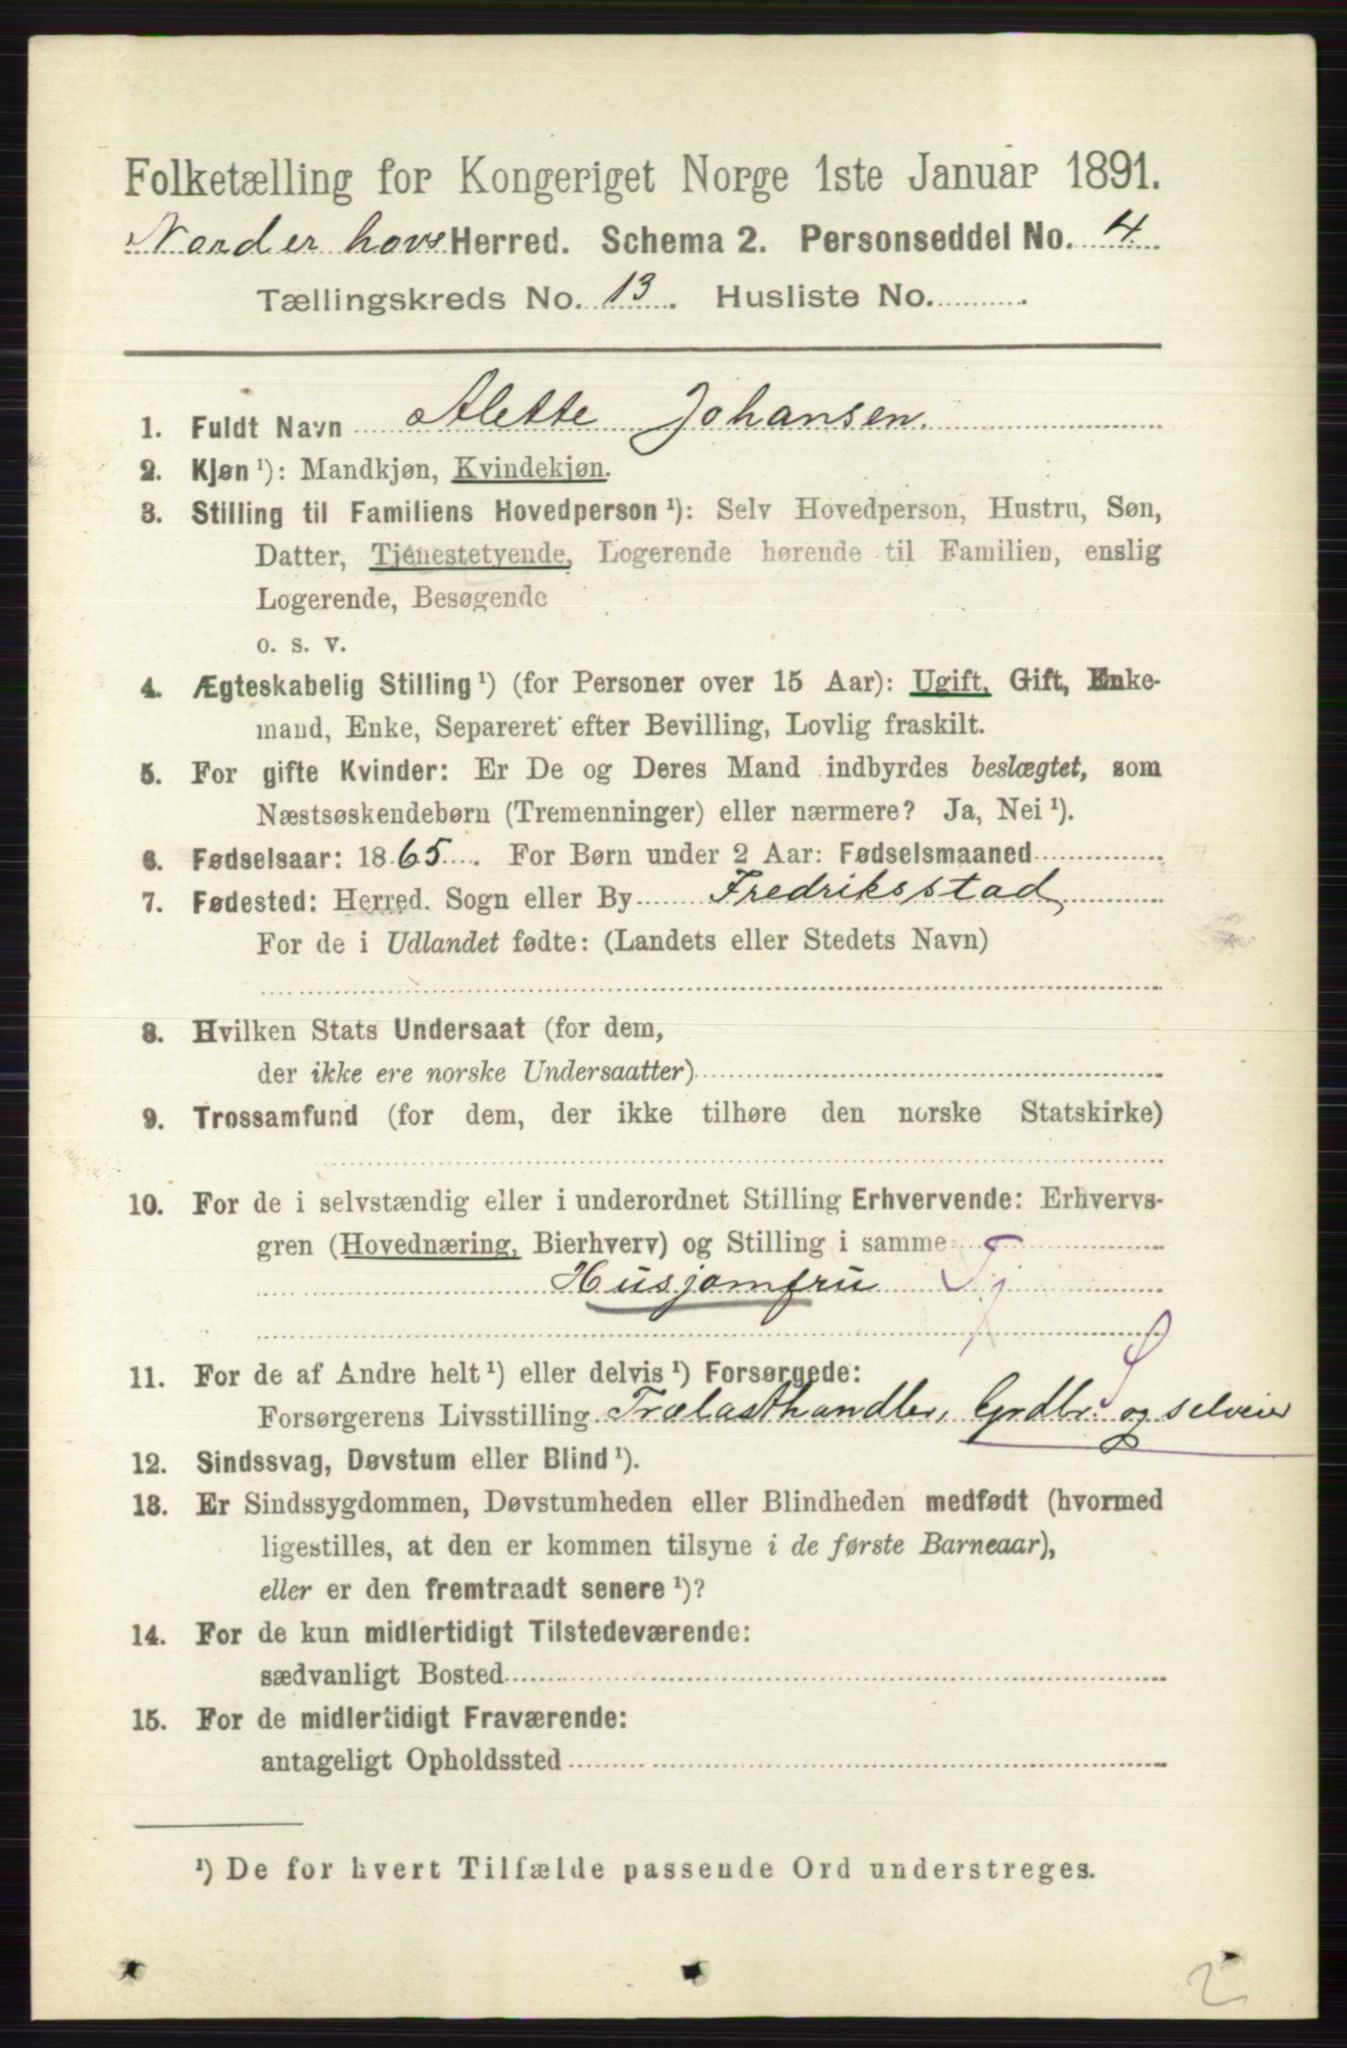 Folketælling for Kongeriget Norge 1ste Januar 1891.
Norderhovs Herred. Schema 2. Personseddel No. 4
Tællingskreds No. 13. Husliste No.
1. Fuldt Navn Alette Johansen.
2. Kjøn ¹): Mandkjøn, Kvindekjøn.
3. Stilling til Familiens Hovedperson ¹): Selv Hovedperson, Hustru, Søn,
Datter, Tjenestetyende, Logerende hørende til Familien, enslig
Logerende, Besøgende
o. s. v.
4. Ægteskabelig Stilling ¹) (for Personer over 15 Aar): Ugift, Gift, Enke-
mand, Enke, Separeret efter Bevilling, Lovlig fraskilt.
5. For gifte Kvinder: Er De og Deres Mand indbyrdes beslægtet, som
Næstsøskendebørn (Tremenninger) eller nærmere? Ja, Nei ¹).
6. Fødselsaar: 1865. For Børn under 2 Aar: Fødselsmaaned
7. Fødested: Herred. Sogn eller By Fredriksstad
For de i Udlandet fødte: (Landets eller Stedets Navn)
8. Hvilken Stats Undersaat (for dem,
der ikke ere norske Undersaatter)
9. Trossamfund (for dem, der ikke tilhøre den norske Statskirke)
10. For de i selvstændig eller i underordnet Stilling Erhvervende: Erhvervs-
gren (Hovednæring, Bierhverv) og Stilling i samme
Husjomfru Tj
11. For de af Andre helt ¹) eller delvis ¹) Forsørgede:
Forsørgerens Livsstilling Trælasthandler, Grdbr. og selveier
12. Sindssvag, Døvstum eller Blind ¹).
13. Er Sindssygdommen, Døvstumheden eller Blindheden medfødt (hvormed
ligestilles, at den er kommen tilsyne i de første Barneaar),
eller er den fremtraadt senere ¹)?
14. For de kun midlertidigt Tilstedeværende:
sædvanligt Bosted
15. For de midlertidigt Fraværende:
antageligt Opholdssted
¹) De for hvert Tilfælde passende Ord understreges.
2